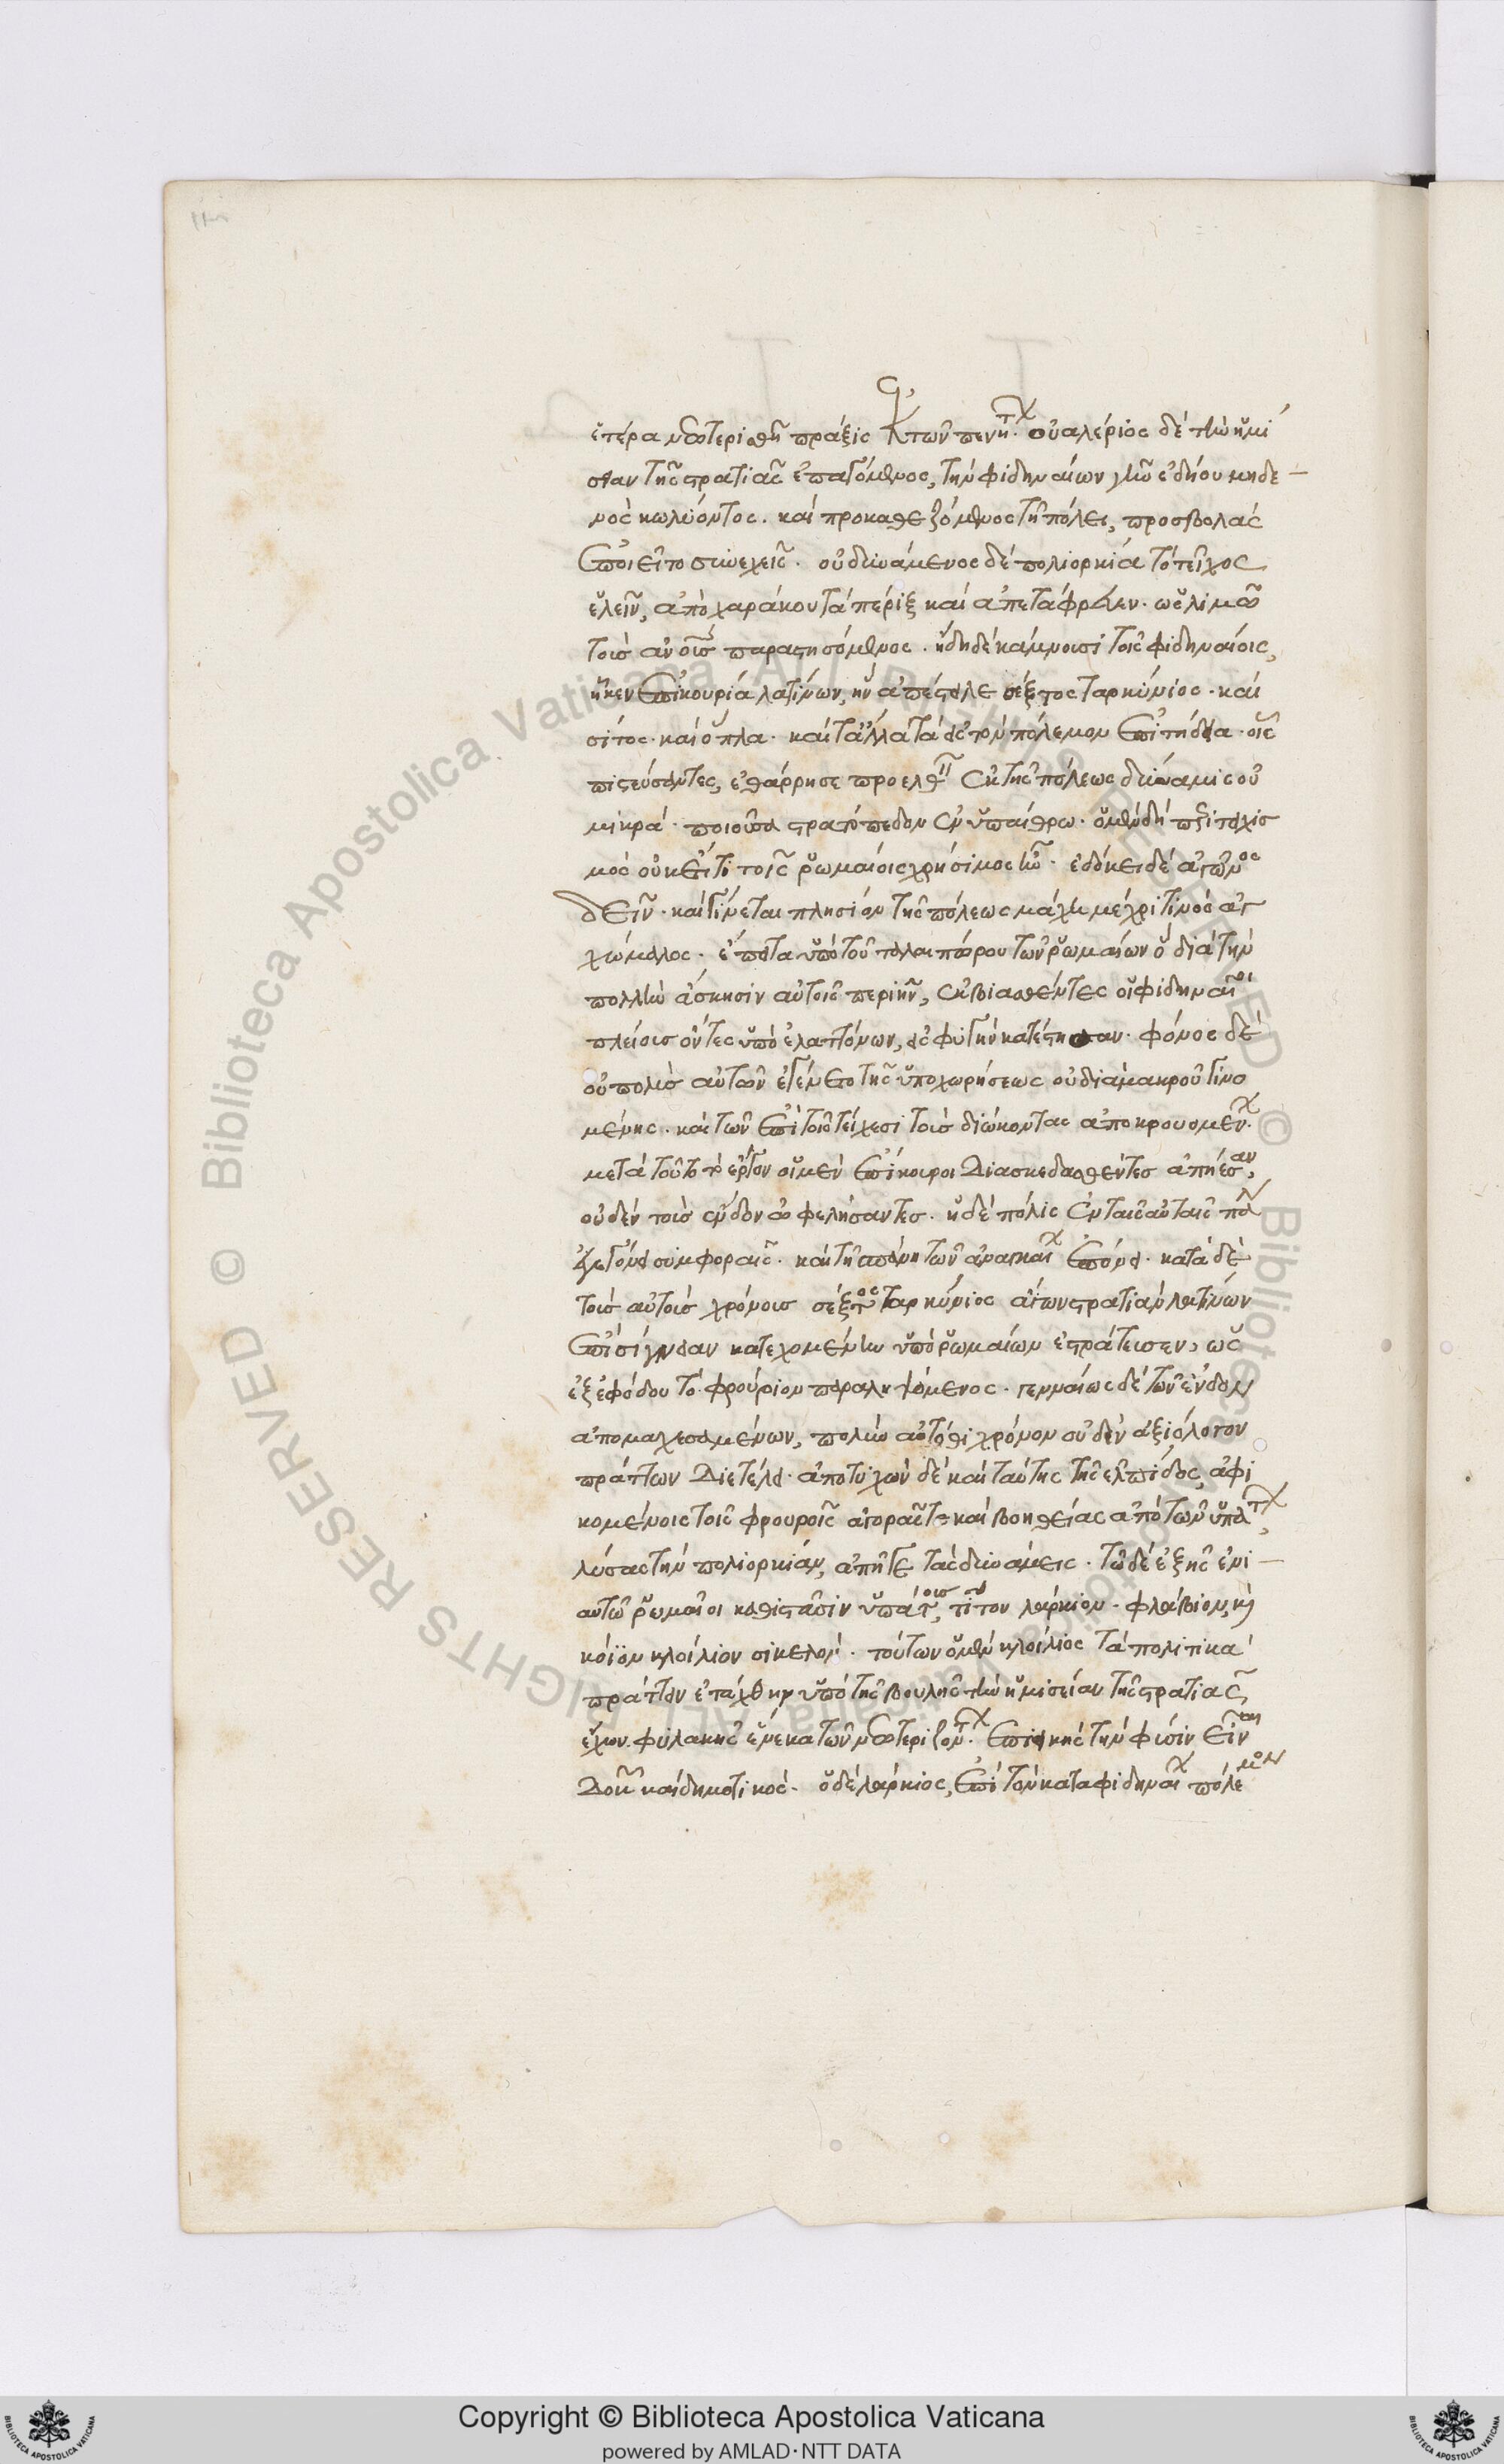 ἑτέρα νεωτερισθῆ πρᾶξις ὑπὸ τῶν πενήτων. οὐαλέριος δὲ τὴν ἡμί
σειαν τῆς στρατιᾶς ἐπαγόμενος, τὴν φιδηναίων γῆν ἐδήου μηδε
νὸς κωλύοντος. καὶ προκαθεζόμενος τῆ πόλει, προσβολὰς
ἐποιεῖτο συνεχεῖς. οὐ δυνάμενος δὲ πολιορκία τὸ τεῖχος
ἑλεῖν, ἀπὸ χαράκου τὰ πέριξ καὶ ἀπετάφρευεν. ὡς λιμῶ
τοὺς ἀνοὺς παραστησόμενος. ἤδη δὲ κάμνουσι τοῖς φιδηναίοις,
ἧκεν ἐπικουρία λατίνων, ἣν ἀπέστειλε σέξτος ταρκύνιος. καὶ
σῖτος. καὶ ὅπλα. καὶ τἄλλα τὰ εἰς τὸν πόλεμον ἐπιτήδεια. οἷς
πιστεύσαντες, ἐθάρρησε προελθεῖν ἐκ τῆς πόλεως δύναμις οὐ
μικρά. ποιοῦσα στρατόπεδον ἐν ὑπαίθρω. ὁ μὲν δὴ περιτειχισ
μὸς οὐκέτι τοῖς ῥωμαίοις χρήσιμος ἦν. ἐδόκει δὲ ἀγῶνος
δεῖν. καὶ γίνεται πλησίον τῆς πόλεως μάχη μέχρι τινὸς ἀγ
χώμαλος. ἔπειτα ὑπὸ τοῦ ταλαιπώρου τῶν ῥωμαίων ὃ διὰ τὴν
πολλὴν ἄσκησιν αὐτοῖς περιῆν, ἐκβιασθέντες οἱ φιδηναῖοι
πλείους ὄντες ὑπὸ ἐλαττόνων, εἰς φυγὴν κατέστησαν. φόνος δὲ
οὐ πολὺς αὐτῶν ἐγένετο τῆς ὑποχωρήσεως οὐ διὰ μακροῦ γινο
μένης. καὶ τῶν ἐπὶ τοῖς τείχεσι τοὺς διώκοντας ἀποκρουομένων.
μετὰ τοῦτο τὸ ἔργον οἱ μὲν ἐπίκουροι διασκεδασθέντες ἀπήεσαν,
οὐδὲν τοὺς ἔνδον ὠφελήσαντες. ἡ δὲ πόλις ἐν ταῖς αὐταῖς πάλιν
ἐγεγόνει συμφοραῖς. καὶ τῆ σπάνει τῶν ἀναγκαίων ἐπόνει. κατὰ δὲ
τοὺς αὐτοὺς χρόνους σέξτος ταρκύνιος ἄγων στρατιὰν λατίνων
ἐπὶ σίγνειαν κατεχομένην ὑπὸ ῥωμαίων ἐστράτευσεν, ὡς
ἐξ ἐφόδου τὸ φρούριον παραληψόμενος. γενναίως δὲ τῶν ἔνδον
ἀπομαχεσαμένων, πολὺν αὐτόθι χρόνον οὐδὲν ἀξιόλογον
πράττων διετέλει. ἀποτυχὼν δὲ καὶ ταύτης τῆς ἐλπίδος, ἀφι
κομένοις τοῖς φρουροῖς ἀγορᾶς τε καὶ βοηθείας ἀπὸ τῶν ὑπάτων,
λύσας τὴν πολιορκίαν, ἀπῆγε τὰς δυνάμεις. τῶ δὲ ἑξῆς ἐνι
αυτῶ ῥωμαῖοι καθιστᾶσιν ὑπάτους, τίτον λάρκιον. φλάβιον, καὶ
κόϊον κλοίλιον σικελόν. τούτων ὁ μὲν κλοίλιος τὰ πολιτικὰ
πράττειν ἐτάχθη ὑπὸ τῆς βουλῆς τὴν ἡμίσειαν τῆς στρατιᾶς
ἔχων. φυλακῆς ἕνεκα τῶν νεωτεριζόντων. ἐπιεικὴς τὴν φύσιν εἶναι
δοκῶν καὶ δημοτικός. ὁ δὲ λάρκιος, ἐπὶ τὸν κατὰ φιδηναίων πόλεμον
Copyright © Biblioteca Apostolica Vaticana
powered by AMLAD·NTT DATA